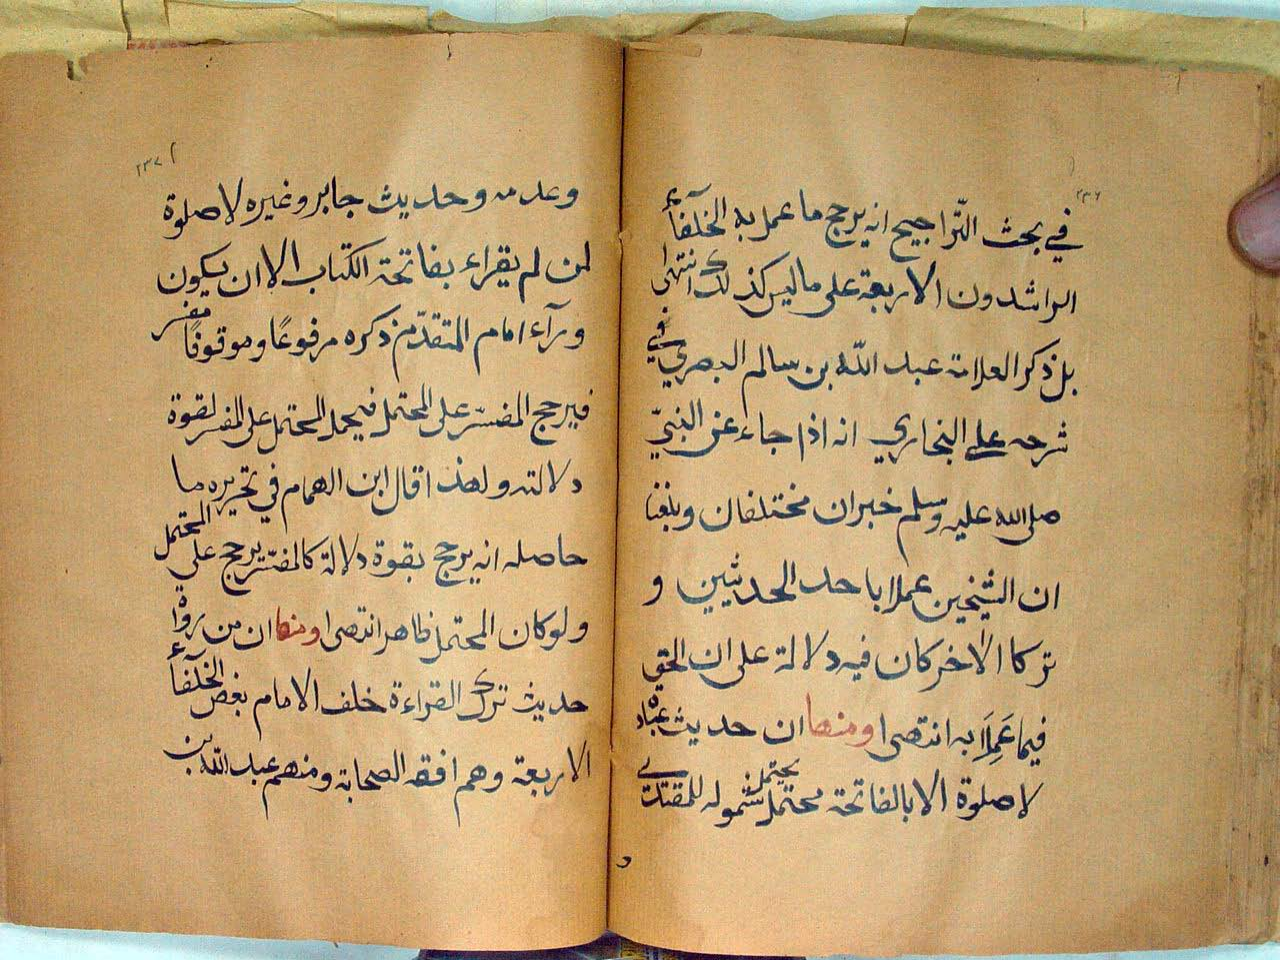 ٢٣٦
في بحث التّراجيح انه يرجح ما عمل به الخلفآء
الراشدون الاربعة على ما ليس كذلك انتهى
بل ذكر العلامة عبد الله بن سالم البصري في
شرحه على البخاري انه اذا جاء عن النبيّ
صلى الله عليه وسلم خبران مختلفان وبلغنا
ان الشيخين عملا باحد الحديثين و
تركا الاخر كان فيه دلالة على ان الحق
فيما عَمِلَا به انتهى ومنها ان حديث عباده
لا صلوة الا بالفاتحة محتمل يحتمل شموله للمقتدي
و
٢٣٧
وعدمه وحديث جابر وغيره لا صلوة
لمن لم يقراء بفاتحة الكتاب الا ان يكون
ورآء امام المتقدّم ذكره مرفوعًا وموقوفًا مفسر
فيرجح المفسّر على المحتمل فيحمل المحتمل على المفسر لقوة
دلالته ولهذا قال ابن الهمام في تحريره ما
حاصله انه يرجح بقوة دلالة كالمفسر يرجح على المحتمل
ولو كان المحتمل ظاهرا انتهى ومنها ان من رواة
حديث ترك القراءة خلف الامام بعض الخلفآء
الاربعة وهم افقه الصحابة ومنهم عبد الله بن